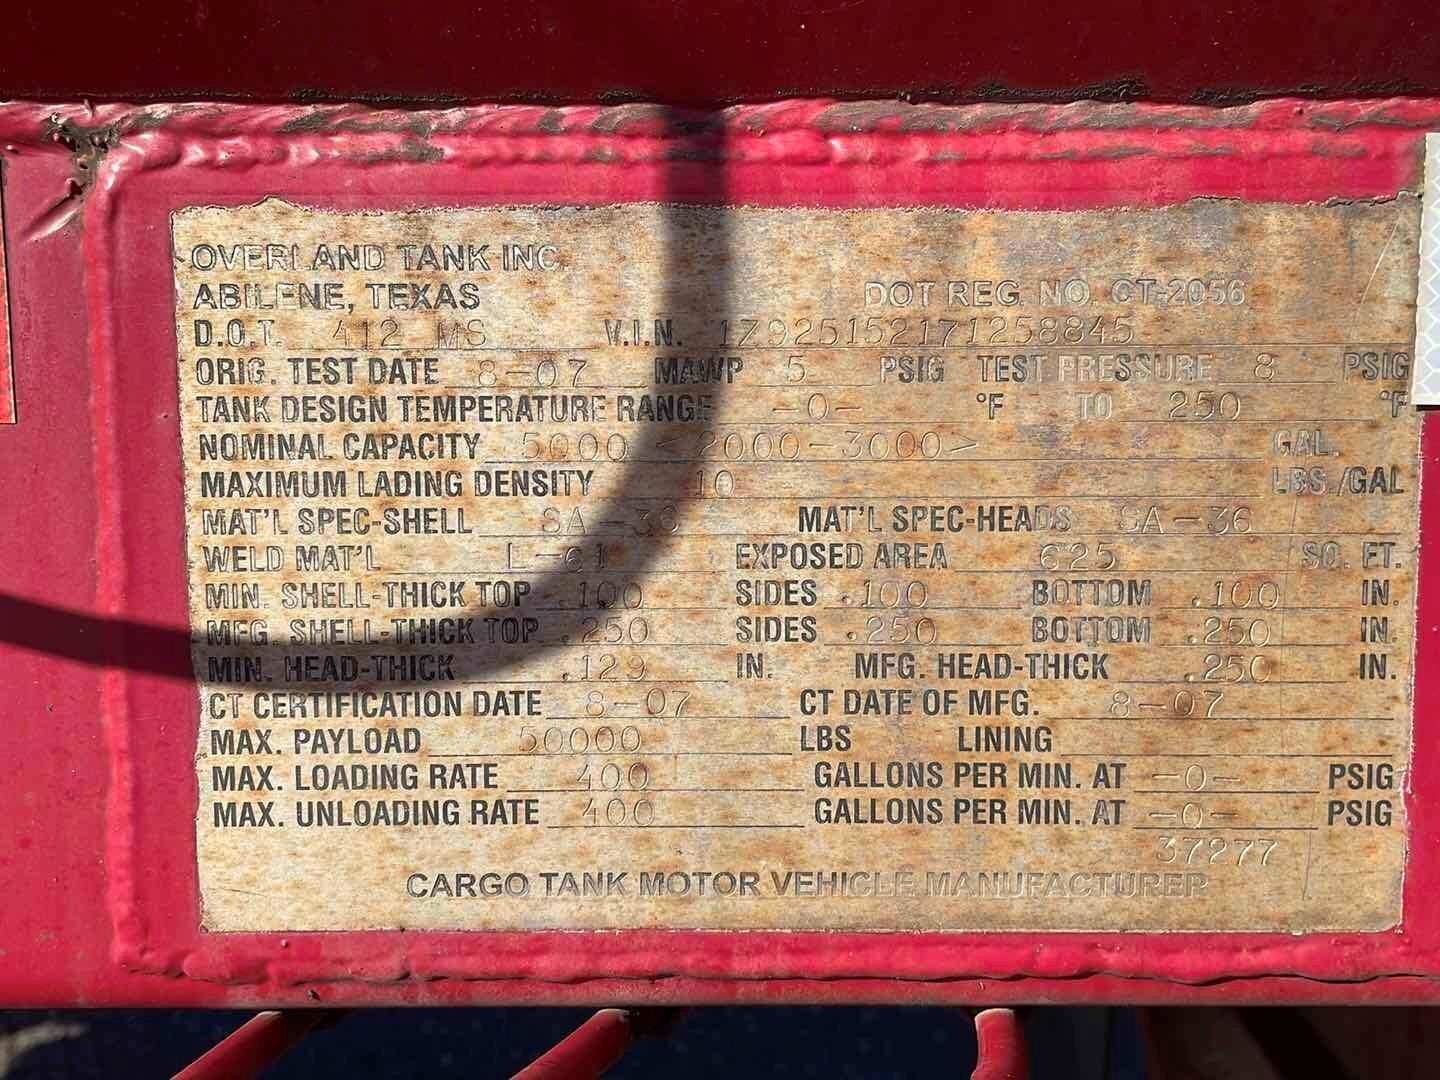 OVERLAND TANK INC
ABILENE, TEXAS DOT REG. NO. CT-2056
D.O.T. 412 MS V.I.N. 1Z925152171258845
ORIG. TEST DATE 8-07 MAWP 5 PSIG TEST PRESSURE 8 PSIG
TANK DESIGN TEMPERATURE RANGE -0- °F TO 250 °F
NOMINAL CAPACITY 5000 <2000-3000> GAL.
MAXIMUM LADING DENSITY 10 LBS./GAL
MAT'L SPEC-SHELL SA-36 MAT'L SPEC-HEADS SA-36
WELD MAT'L L-61 EXPOSED AREA 625 SQ. FT.
MIN. SHELL-THICK TOP .100 SIDES .100 BOTTOM .100 IN.
MFG. SHELL-THICK TOP .250 SIDES .250 BOTTOM .250 IN.
MIN. HEAD-THICK .129 IN. MFG. HEAD-THICK .250 IN.
CT CERTIFICATION DATE 8-07 CT DATE OF MFG. 8-07
MAX. PAYLOAD 50000 LBS LINING
MAX. LOADING RATE 400 GALLONS PER MIN. AT -0- PSIG
MAX. UNLOADING RATE 400 GALLONS PER MIN. AT -0- PSIG
37277
CARGO TANK MOTOR VEHICLE MANUFACTURER